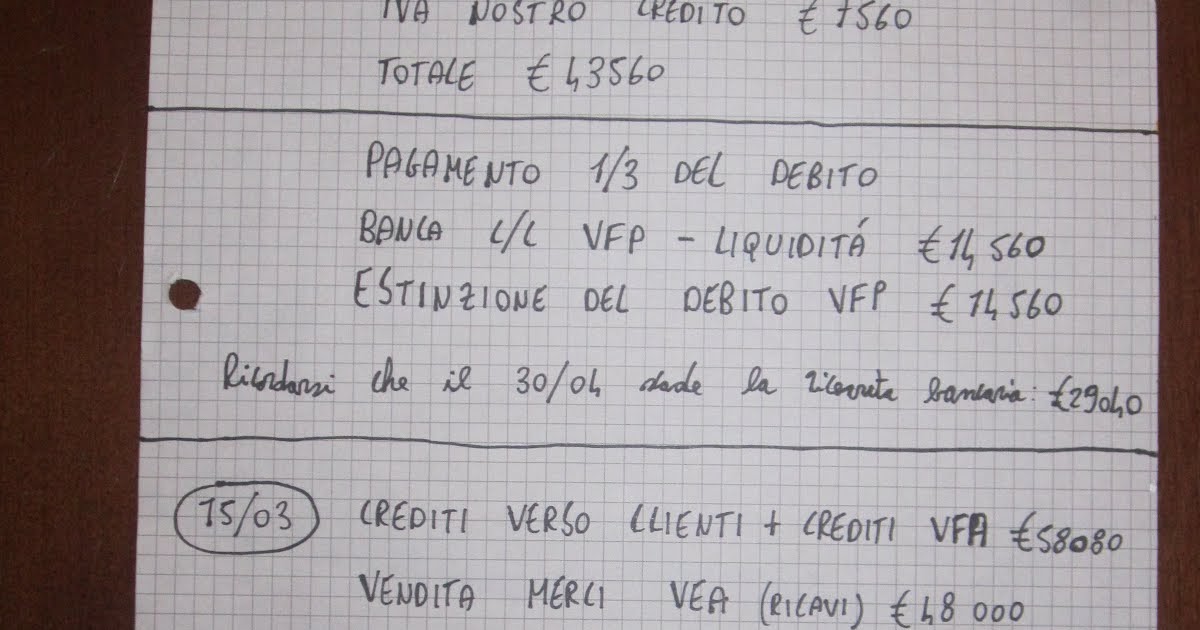 IVA NOSTRO CREDITO € 7560
TOTALE € 43560
PAGAMENTO 1/3 DEL DEBITO
BANCA C/C VFP - LIQUIDITÁ € 14 560
ESTINZIONE DEL DEBITO VFP € 14 560
Ricordarsi che il 30/04 scade la ricevuta bancaria: €29040
15/03 CREDITI VERSO CLIENTI + CREDITI VFA €58080
VENDITA MERCI VEA (RICAVI) € 48 000